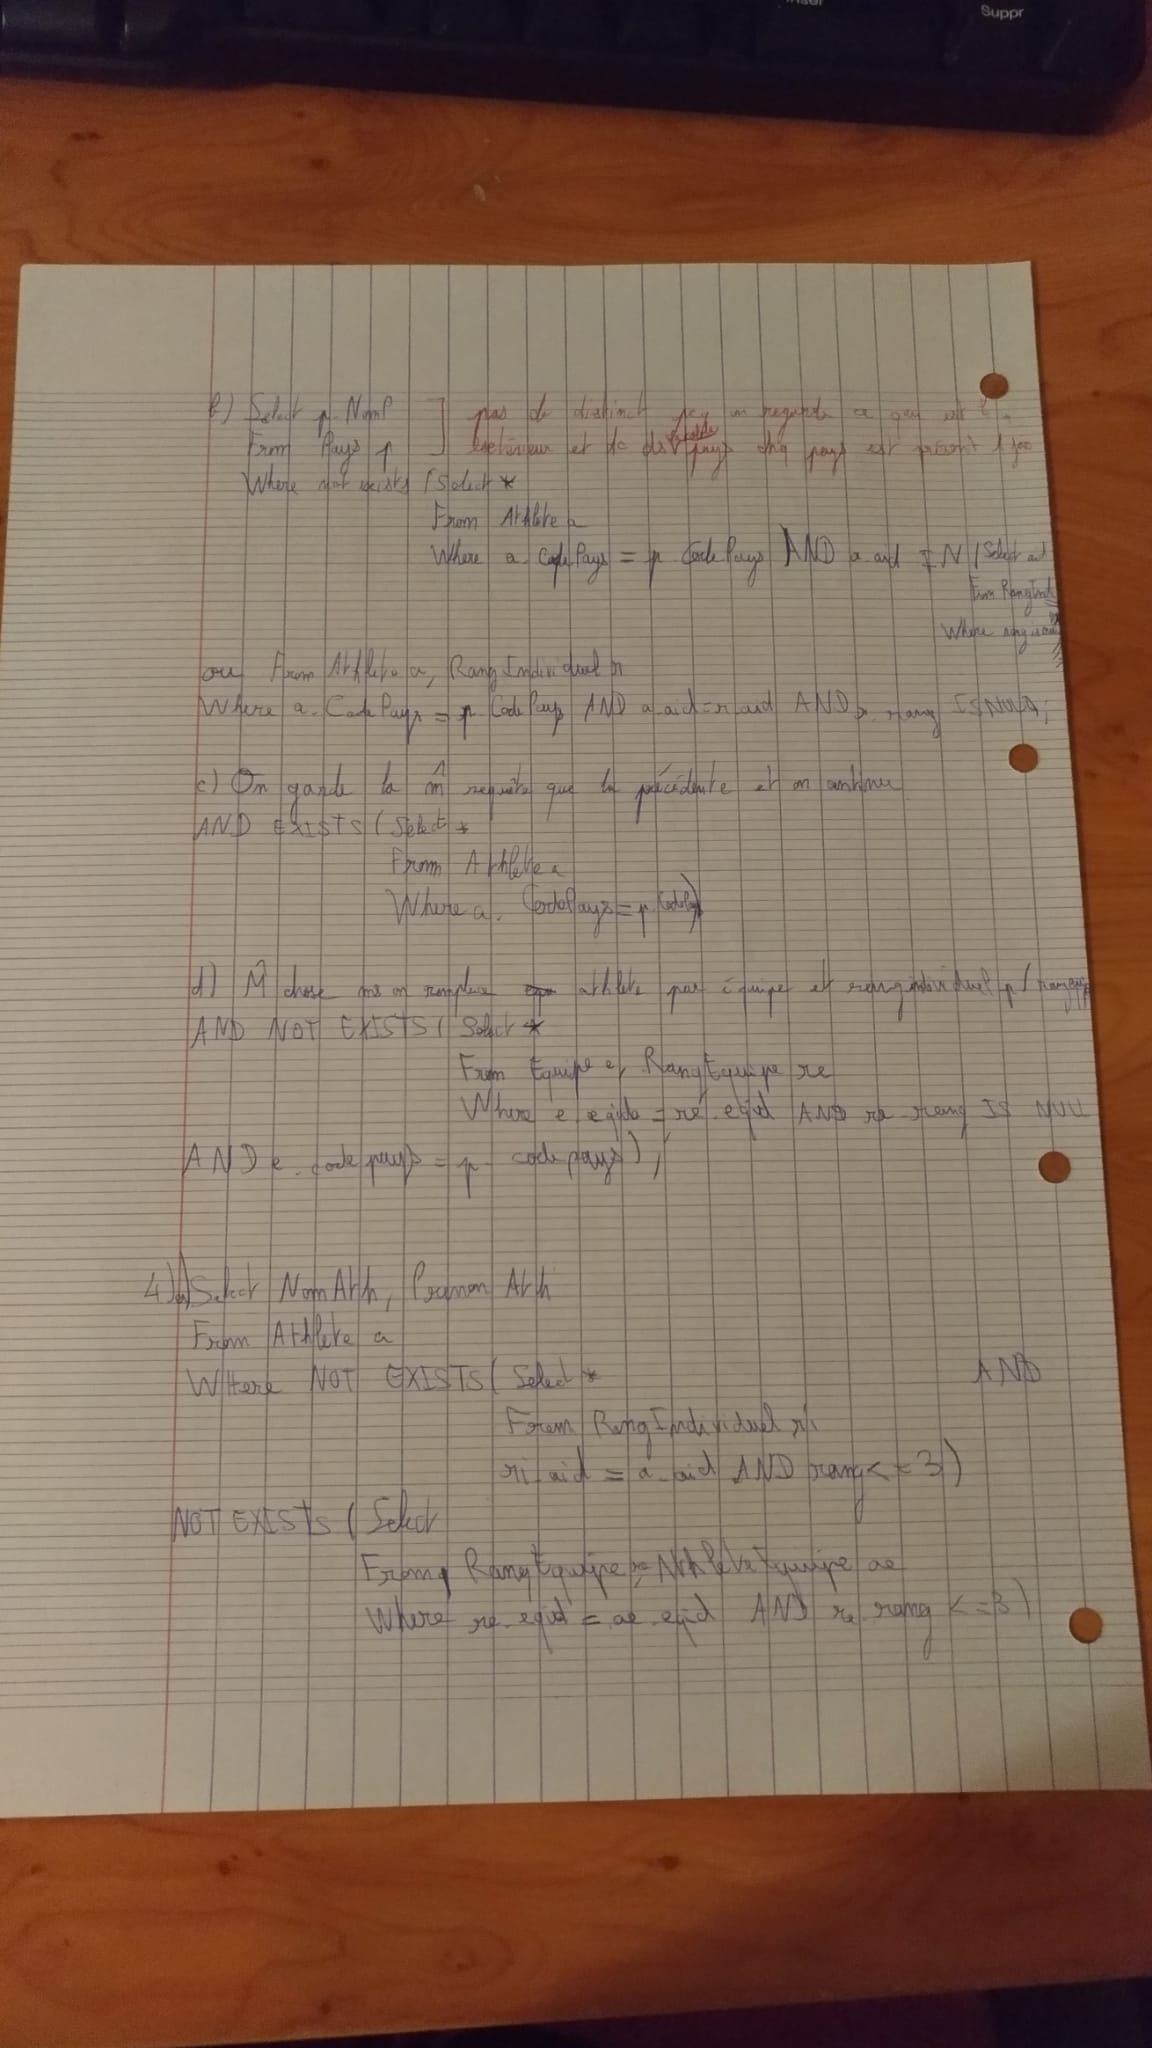 Suppr
b) Select p. NomP ] pas de distinct pcq on regarde ce qui est à l'
From Pays p extérieur et dc ds table pays chq pays est présent 1 fois
Where not exists (Select *
From Athlete a
Where a. CodePays = p. CodePays AND a.aid IN (Select aid
From RangInd
Where rang is null
ou From Athlete a, RangIndividuel r
Where a. CodePays = p. CodePays AND a.aid = r.aid AND r. rang IS NULL;
c) On garde la m̂ requête que la précédente et on continue
AND EXISTS (Select *
From Athlete a
Where a. CodePays = p. CodePays)
d) M̂ chose ms on remplace athlete par équipe et rangindividuel p/
AND NOT EXISTS (Select *
From Equipe e, RangEquipe re
Where e. eqid = re. eqid AND re. rang IS NULL
AND e. codepays = p. codepays);
4) a) Select NomAth, PrenomAth
From Athlete a
WHere NOT EXISTS (Select * AND
From RangIndividuel ri
ri.aid = a.aid AND rang <= 3)
NOT EXISTS (Select
From RangEquipe re, AthleteEquipe ae
Where re.eqid = ae.eqid AND re.rang <= 3)